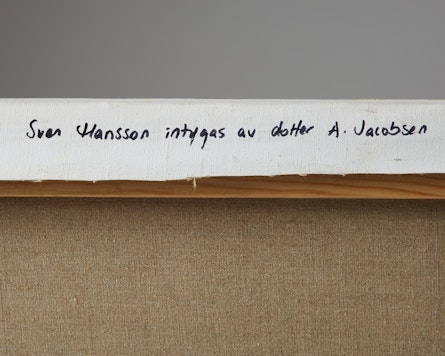 Sven Hansson intygas av dotter A. Jacobsen